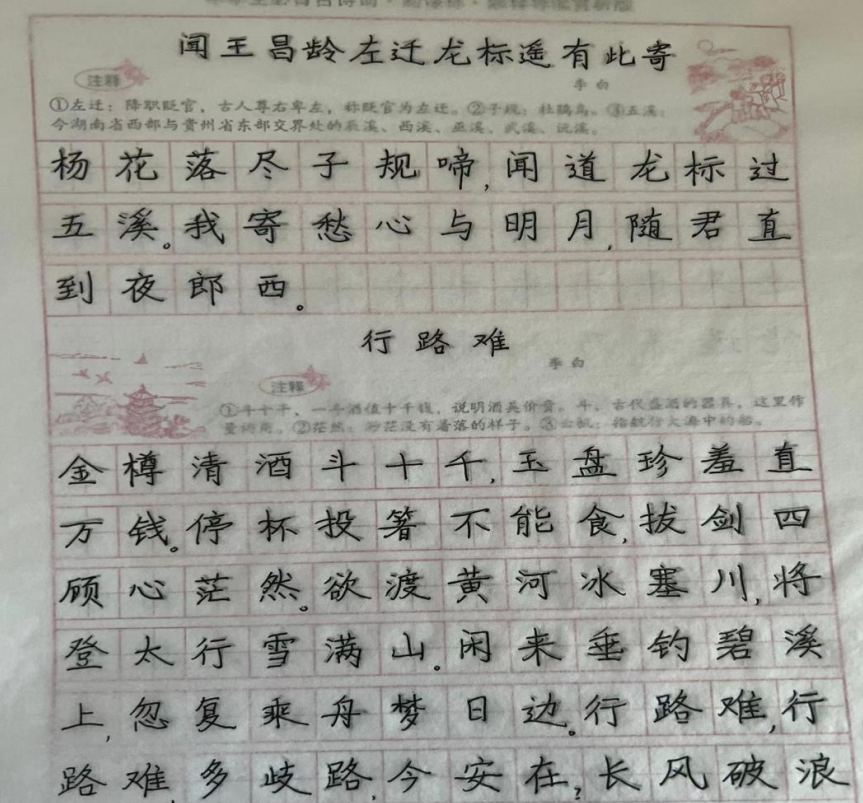 闻王昌龄左迁龙标遥有此寄
李白
注释
①左迁：降职贬官，古人尊右卑左，称贬官为左迁。②子规：杜鹃鸟。③五溪：
今湖南省西部与贵州省东部交界处的辰溪、酉溪、巫溪、武溪、沅溪。
杨花落尽子规啼,闻道龙标过
五溪。我寄愁心与明月,随君直
到夜郎西。
行路难
李白
注释
①斗十千，一斗酒值十千钱，说明酒美价贵。斗，古代盛酒的器具，这里作
量词用。②茫然：渺茫没有着落的样子。③云帆：指航行大海中的船。
金樽清酒斗十千,玉盘珍羞直
万钱。停杯投箸不能食,拔剑四
顾心茫然。欲渡黄河冰塞川,将
登太行雪满山。闲来垂钓碧溪
上,忽复乘舟梦日边。行路难,行
路难,多歧路,今安在?长风破浪